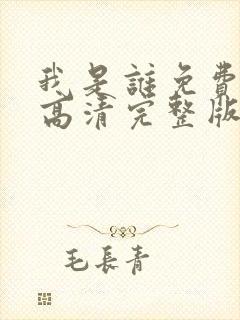 我是誰免費
高清完整版
毛長青